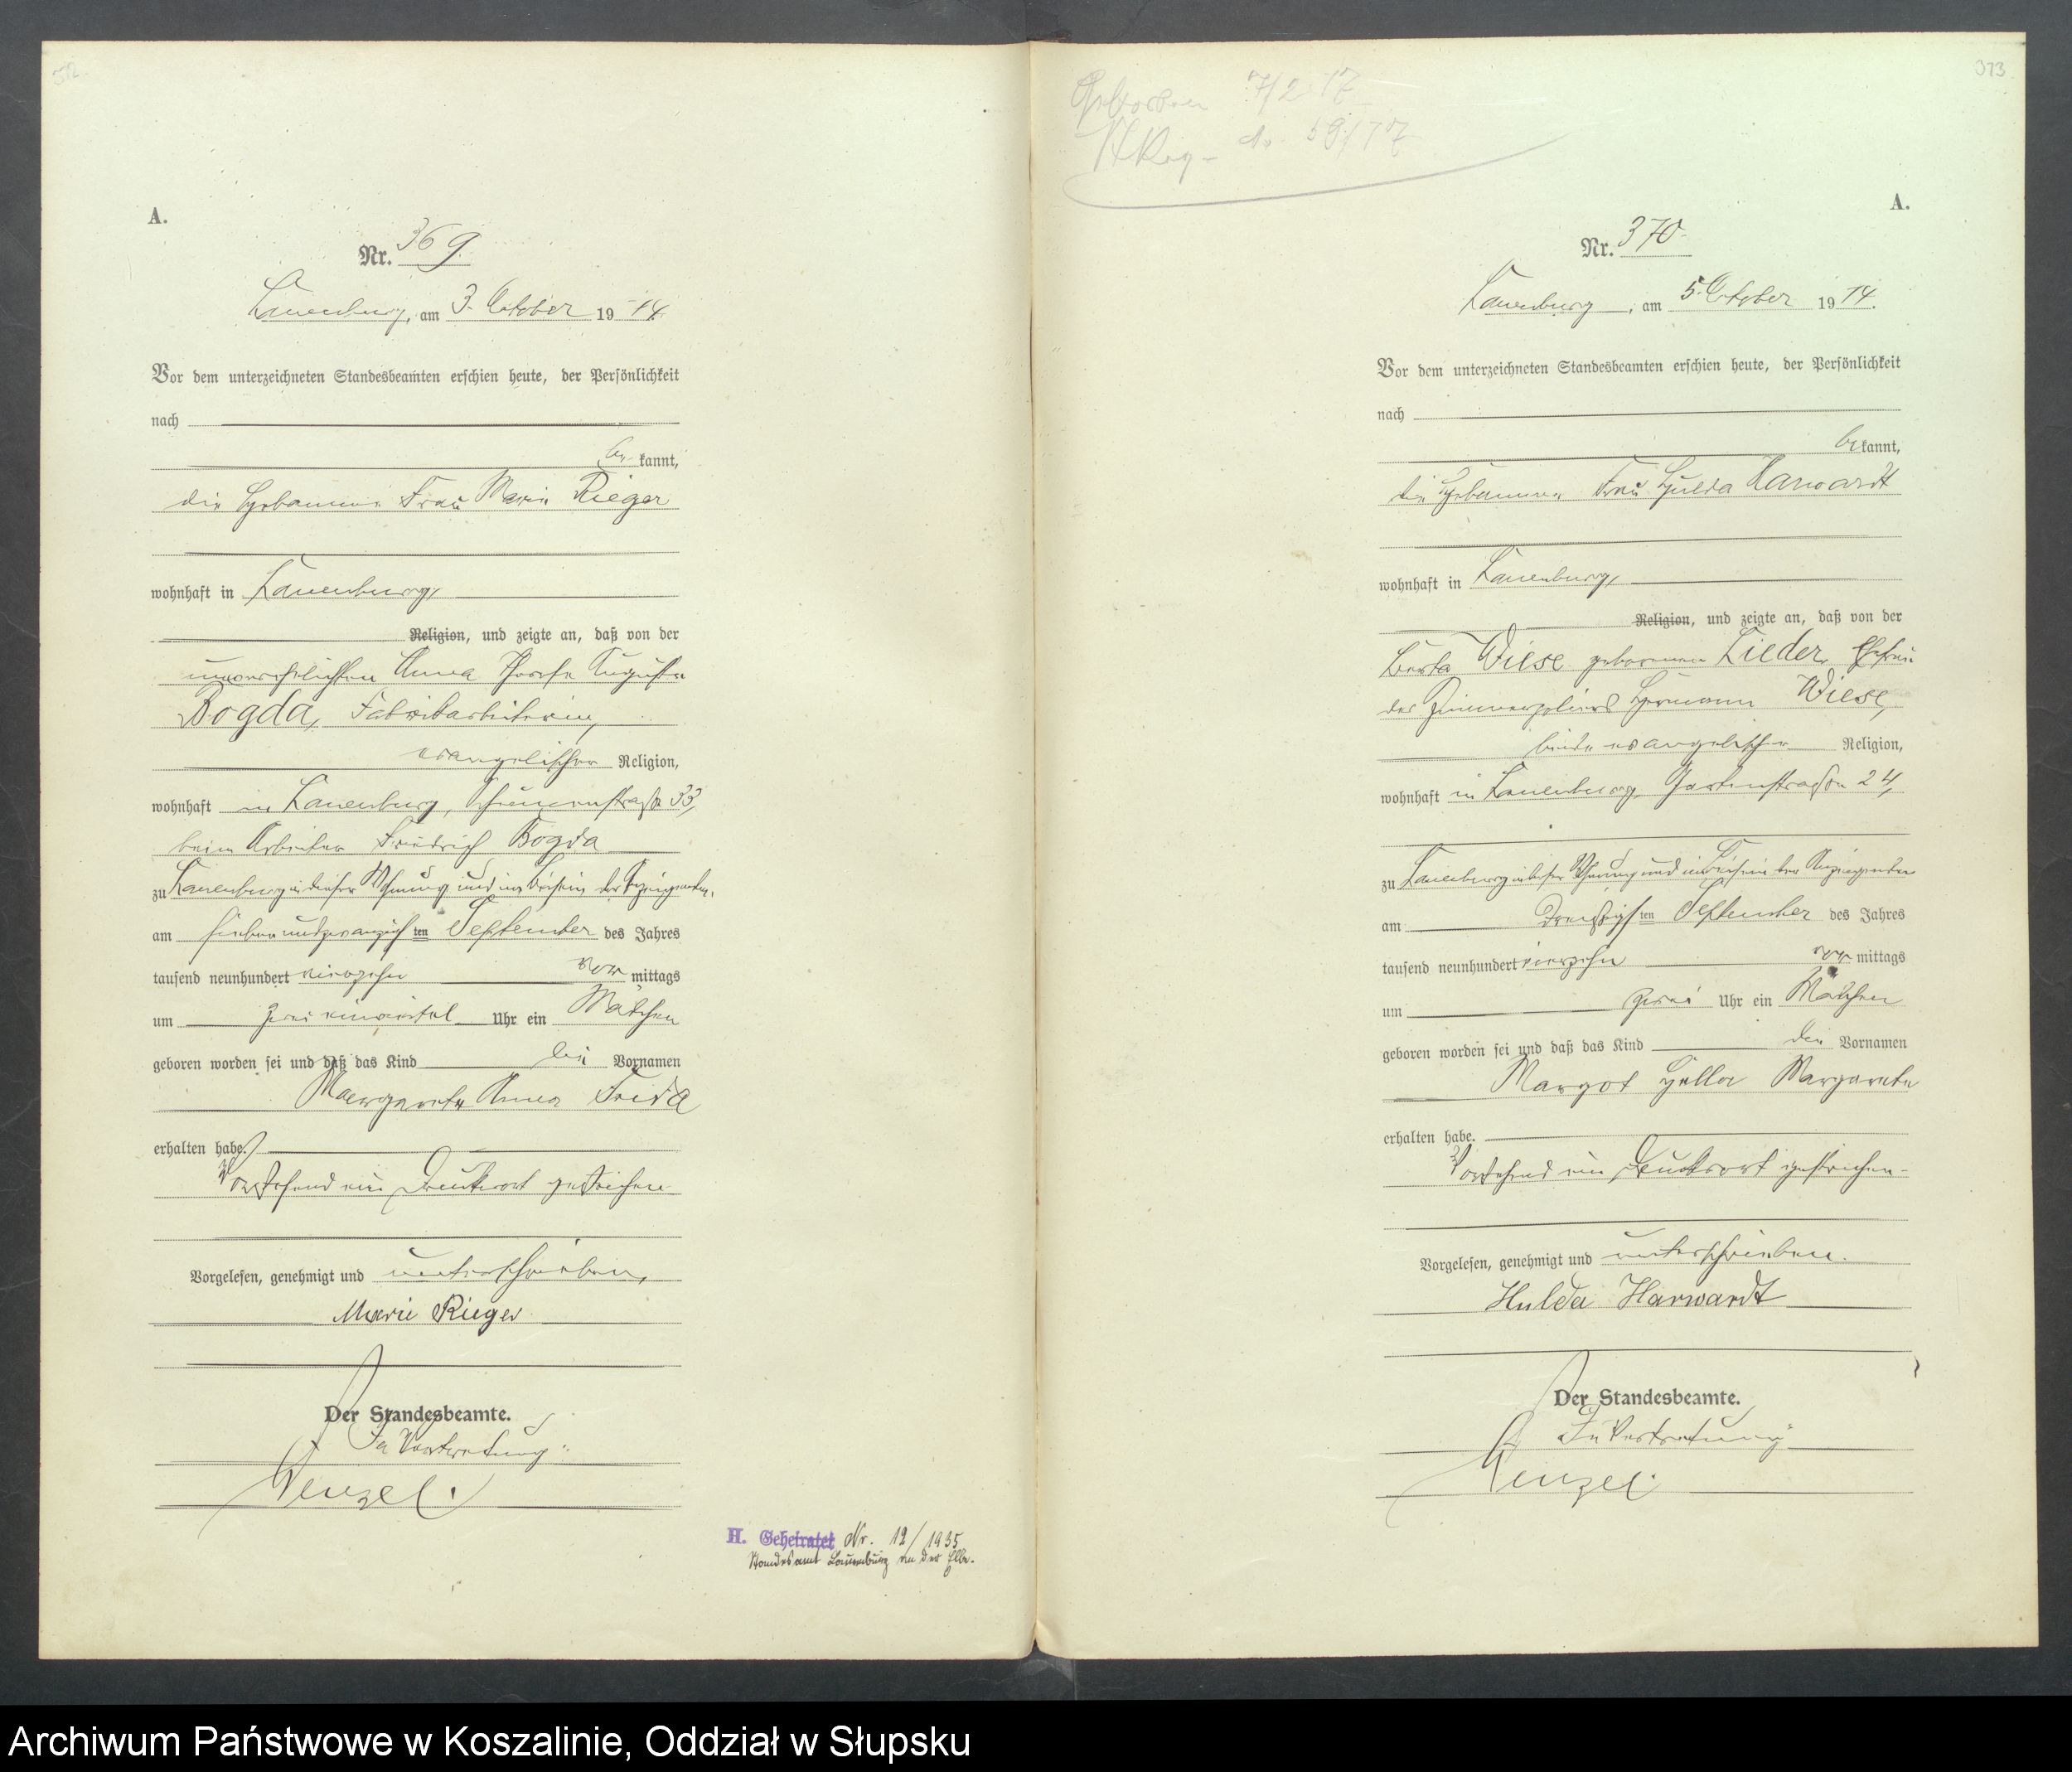 A.
Nr. 369.
Lauenburg, am 3. October 1914.
Vor dem unterzeichneten Standesbeamten erschien heute, der Persönlichkeit
nach
be kannt,
die Hebamme Frau Marie Rieger
wohnhaft in Lauenburg,
Religion, und zeigte an, daß von der
unverehelichten Anna Auguste
Bogda, Fabrikarbeiterin,
evangelischer Religion,
wohnhaft in Lauenburg, 33,
beim Arbeiter Friedrich Bogda
zu Lauenburg in dieser Wohnung und im Beisein der Anzeigenden,
am siebenundzwanzigsten September des Jahres
tausend neunhundert vierzehn vor mittags
um zwei einviertel Uhr ein Mädchen
geboren worden sei und daß das Kind die Vornamen
Margarete Anna Frida
erhalten habe.
Vorstehend ein Druckwort gestrichen
Vorgelesen, genehmigt und unterschrieben,
Marie Rieger
Der Standesbeamte.
In Vertretung:
Wenzel.
H. Geheiratet Nr. 12/1935
Standesamt Lauenburg an der Elbe.
373
Gestorben 7/2 17
St. Reg. No. 59/17
A.
Nr. 370.
Lauenburg, am 5. October 1914.
Vor dem unterzeichneten Standesbeamten erschien heute, der Persönlichkeit
nach
be kannt,
die Hebamme Frau Hulda Harwardt
wohnhaft in Lauenburg,
Religion, und zeigte an, daß von der
Berta Wiese geborenen Lieder, Ehefrau
des Zimmerpoliers Hermann Wiese,
beide evangelischer Religion,
wohnhaft in Lauenburg, Gartenstraße 24,
zu Lauenburg in dieser Wohnung und im Beisein der Anzeigenden
am dreißigsten September des Jahres
tausend neunhundert vierzehn vor mittags
um zwei Uhr ein Mädchen
geboren worden sei und daß das Kind die Vornamen
Margot Hella Margarete
erhalten habe.
Vorstehend ein Druckwort gestrichen
Vorgelesen, genehmigt und unterschrieben.
Hulda Harwardt
Der Standesbeamte.
In Vertretung:
Wenzel.
Archiwum Państwowe w Koszalinie, Oddział w Słupsku